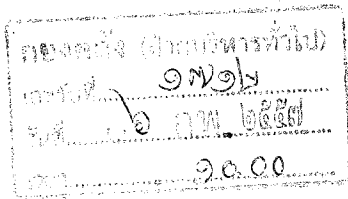 กองคลัง (ฝ่ายบริหารทั่วไป)
เลขรับที่ ๑๗๑๒
วันที่ ๖ กพ ๒๕๕๗
เวลา 10.00